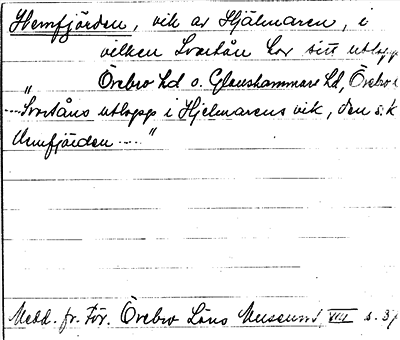 Hemfjärden, vik av Hjälmaren, i
vilken Svartån har sitt utlopp
Örebro hd o. Glanshammars hd, Örebro
„ ....Svartåns utlopp i Hjelmarens vik, den s.k.
Ämfjärden ...."
Medd. fr. För. Örebro Läns Museum, VIII s. 37